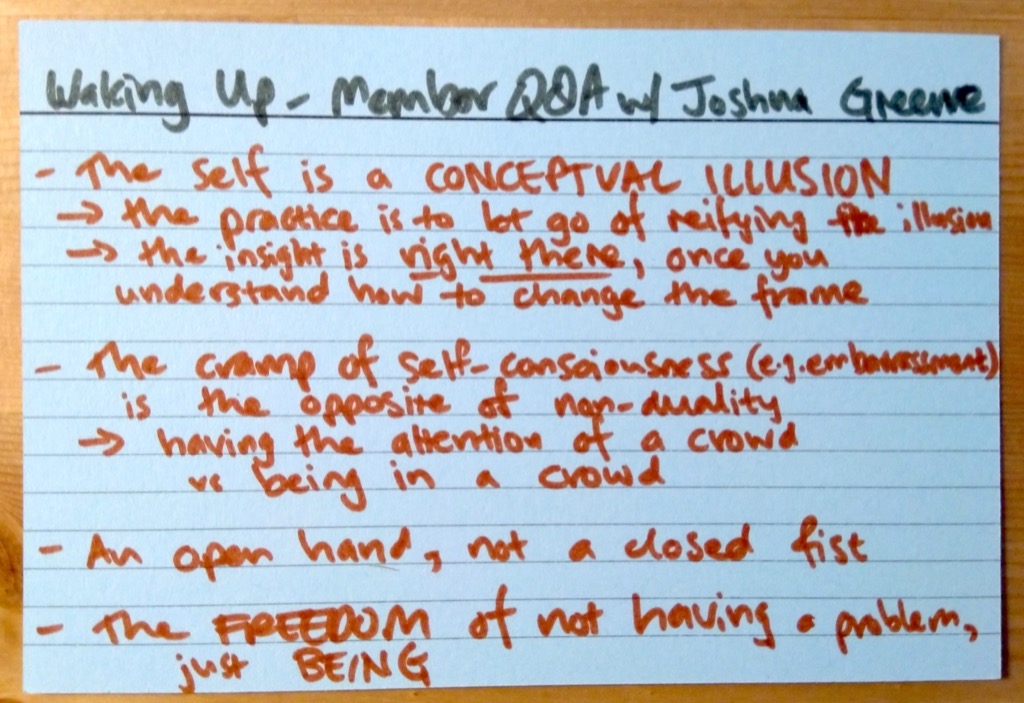 Waking Up - Member Q&A w/ Joshua Greene
- The self is a CONCEPTUAL ILLUSION
→ the practice is to let go of reifying the illusion
→ the insight is right there, once you
understand how to change the frame
- The cramp of self-consciousness (e.g. embarrassment)
is the opposite of non-duality
→ having the attention of a crowd
vs being in a crowd
- An open hand, not a closed fist
- The FREEDOM of not having a problem,
just BEING